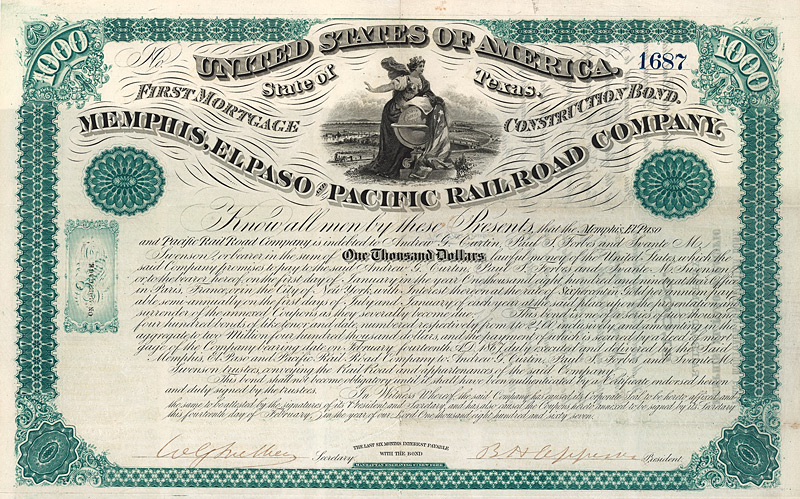 1000
1000
No
1687
UNITED STATES OF AMERICA.
State of Texas.
FIRST MORTGAGE CONSTRUCTION BOND.
MEMPHIS, EL PASO AND PACIFIC RAILROAD COMPANY.
Know all men by these Presents, that the Memphis, El Paso
and Pacific Rail Road Company is indebted to Andrew G. Curtin, Paul S. Forbes and Swante M.
Swenson, or bearer in the sum of One Thousand Dollars lawful money of the United States, which the
said Company promises to pay to the said Andrew G. Curtin, Paul S. Forbes and Swante M. Swenson
or to the bearer hereof, on the first day of January in the year One thousand eight hundred and ninety at their Office
in Paris, France, or in the City of New York, and interest thereon at the rate of Six per cent, Gold per annum, pay-
able semi-annually on the first days of July and January of each year at the said place, upon the presentation and
surrender of the annexed Coupons as they severally become due. This bond is one of a series of two thousand
four hundred bonds of like tenor and date, numbered respectively from 1 to 2400 inclusively, and amounting in the
aggregate to two Million four hundred thousand dollars, and the payment of which is secured by a deed of mort-
gage of the Company bearing date, on February fourteenth, A.D. 1867 duly created and delivered by the said
Memphis, El Paso and Pacific Rail Road Company to Andrew G. Curtin, Paul S. Forbes and Swante M.
Swenson trustees, conveying the Rail Road and appurtenances of the said Company.
This bond shall not become obligatory until it shall have been authenticated by a Certificate endorsed hereon
and duly signed by the trustees.
In Witness Whereof, the said Company has caused its Corporate Seal to be hereto affixed and
the same to be attested by the signatures of its President and Secretary, and has also caused the Coupons hereto annexed to be signed by its Secretary
this fourteenth day of February, in the year of our Lord One thousand eight hundred and sixty seven.
Secretary.
THE LAST SIX MONTHS INTEREST PAYABLE
WITH THE BOND
President.
MANHATTAN ENGRAVING CO. NEW YORK.